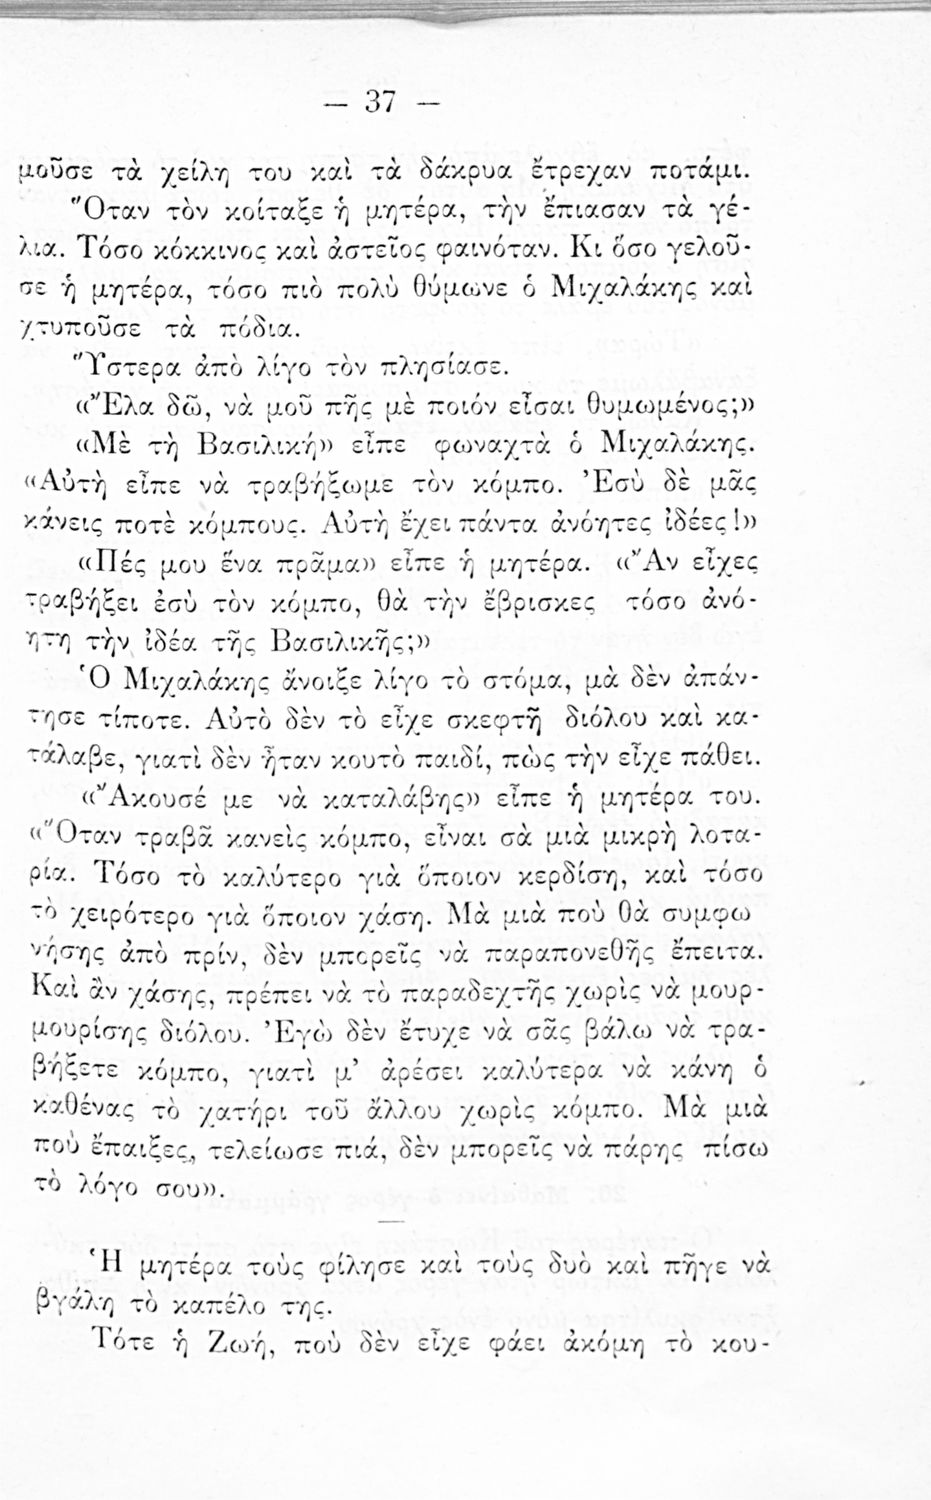 — 37 —
μοῦσε τὰ χείλη του καὶ τὰ δάκρυα ἔτρεχαν ποτάμι.
Ὅταν τὸν κοίταξε ἡ μητέρα, τὴν ἔπιασαν τὰ γέ-
λια. Τόσο κόκκινος καὶ ἀστεῖος φαινόταν. Κι ὅσο γελοῦ-
σε ἡ μητέρα, τόσο πιὸ πολὺ θύμωνε ὁ Μιχαλάκης καὶ
χτυποῦσε τὰ πόδια.
Ὕστερα ἀπὸ λίγο τὸν πλησίασε.
«Ἔλα δῶ, νὰ μοῦ πῆς μὲ ποιόν εἶσαι θυμωμένος;»
«Μὲ τὴ Βασιλικὴ» εἶπε φωναχτὰ ὁ Μιχαλάκης.
«Αὐτὴ εἶπε νὰ τραβήξωμε τὸν κόμπο. Ἐσὺ δὲ μᾶς
κάνεις ποτὲ κόμπους. Αὐτὴ ἔχει πάντα ἀνόητες ἰδέες!»
«Πές μου ἕνα πρᾶμα» εἶπε ἡ μητέρα. «Ἂν εἶχες
τραβήξει ἐσὺ τὸν κόμπο, θὰ τὴν ἔβρισκες τόσο ἀνό-
ητη τὴν ἰδέα τῆς Βασιλικῆς;»
Ὁ Μιχαλάκης ἄνοιξε λίγο τὸ στόμα, μὰ δὲν ἀπάν-
τησε τίποτε. Αὐτὸ δὲν τὸ εἶχε σκεφτῆ διόλου καὶ κα-
τάλαβε, γιατὶ δὲν ἦταν κουτὸ παιδί, πὼς τὴν εἶχε πάθει.
«Ἄκουσέ με νὰ καταλάβης» εἶπε ἡ μητέρα του.
«Ὅταν τραβᾶ κανεὶς κόμπο, εἶναι σὰ μιὰ μικρὴ λοτα-
ρία. Τόσο τὸ καλύτερο γιὰ ὅποιον κερδίση, καὶ τόσο
τὸ χειρότερο γιὰ ὅποιον χάση. Μὰ μιὰ ποὺ θὰ συμφω
νήσης ἀπὸ πρίν, δὲν μπορεῖς νὰ παραπονεθῆς ἔπειτα.
Καὶ ἂν χάσης, πρέπει νὰ τὸ παραδεχτῆς χωρὶς νὰ μουρ-
μουρίσης διόλου. Ἐγὼ δὲν ἔτυχε νὰ σᾶς βάλω νὰ τρα-
βήξετε κόμπο, γιατὶ μ’ ἀρέσει καλύτερα νὰ κάνη ὁ
καθένας τὸ χατήρι τοῦ ἄλλου χωρὶς κόμπο. Μὰ μιὰ
ποὺ ἔπαιξες, τελείωσε πιά, δὲν μπορεῖς νὰ πάρης πίσω
τὸ λόγο σου».
Ἡ μητέρα τοὺς φίλησε καὶ τοὺς δυὸ καὶ πῆγε νὰ
βγάλη τὸ καπέλο της.
Τότε ἡ Ζωή, ποὺ δὲν εἶχε φάει ἀκόμη τὸ κου-